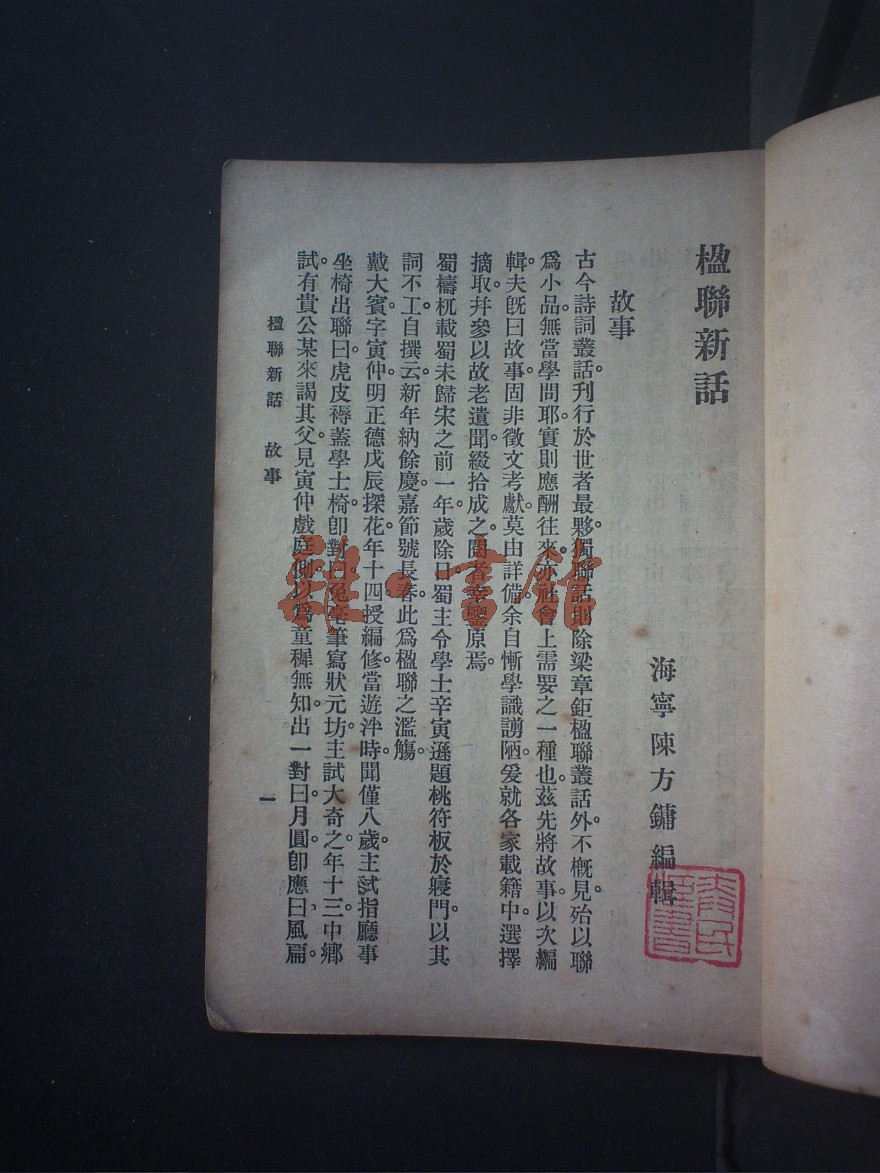 楹聯新話
海寧陳方鏞編輯
故事
古今詩詞叢話刊行於世者最夥。獨聯話則除梁章鉅楹聯叢話外。不槪見殆以聯
爲小品。無當學問耶。實則應酬往來。亦社會上需要之一種也。茲先將故事。以次編
輯。夫旣曰故事。固非徵文考獻。莫由詳備。余自慚學識謭陋。爰就各家載籍中。選擇
摘取。幷參以故老遺聞。綴拾成之。閱者幸鑒原焉。
蜀檮杌載蜀未歸宋之前一年。歲除日。蜀主令學士辛寅遜題桃符板於寢門。以其
詞不工。自撰云。新年納餘慶。嘉節號長春。此爲楹聯之濫觴。
戴大賓字寅仲。明正德戊辰探花。年十四授編修。當遊泮時。聞僅八歲。主試指廳事
坐椅出聯曰。虎皮褥蓋學士椅。卽對曰。兔毫筆寫狀元坊。主試大奇之。年十三中鄉
試。有貴公某來謁其父。見寅仲戲庭側。以爲童穉無知。出一對曰。月圓。卽應曰。風扁。
楹聯新話 故事
一
雜·書館